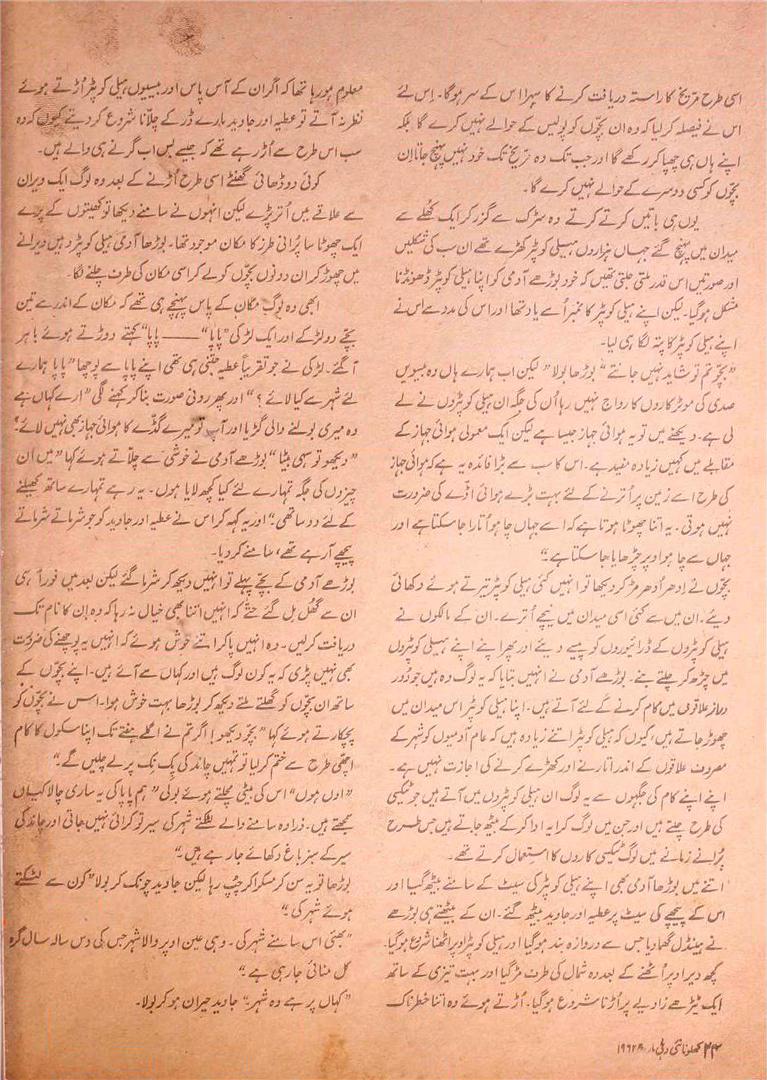 اسی طرح مریخ کا راستہ دریافت کرنے کا سہرا اس کے سر ہوگا۔ اِس لئے
اس نے فیصلہ کر لیا کہ وہ ان بچّوں کو پولیس کے حوالے نہیں کرے گا بلکہ
اپنے ہاں ہی چھپا کر رکھے گا اور جب تک وہ مریخ تک خود نہیں پہنچ جاتا اِن
بچّوں کو کسی دوسرے کے حوالے نہیں کرے گا۔
یوں ہی باتیں کرتے کرتے وہ سڑک سے گزر کر ایک کُھلے سے
میدان میں پہنچ گئے جہاں ہزاروں ہیلی کوپٹر کھڑے تھے ان سب کی شکلیں
اور صورتیں اس قدر ملتی جلتی تھیں کہ خود بوڑھے آدمی کو اپنا ہیلی کوپٹر ڈھونڈنا
مشکل ہو گیا۔ لیکن اپنے ہیلی کوپٹر کا نمبر اُسے یاد تھا اور اس کی مدد سے اس نے
اپنے ہیلی کوپٹر کا پتہ لگا ہی لیا۔
”بچّو تم تو شاید نہیں جانتے“ بوڑھا بولا ”لیکن اب ہمارے ہاں وہ بیسویں
صدی کی موٹر کاروں کا رواج نہیں رہا اُن کی جگہ ان ہیلی کوپٹروں نے لے
لی ہے۔ دیکھنے میں تو یہ ہوائی جہاز جیسا ہے لیکن ایک معمولی ہوائی جہاز کے
مقابلے میں کہیں زیادہ مفید ہے۔ اس کا سب سے بڑا فائدہ یہ ہے کہ ہوائی جہاز
کی طرح اسے زمین پر اُترنے کے لئے بہت بڑے ہوائی اڈّے کی ضرورت
نہیں ہوتی۔ یہ اتنا چھوٹا ہوتا ہے کہ اسے جہاں چاہو اُتارا جا سکتا ہے اور
جہاں سے چاہو اوپر چڑھایا جا سکتا ہے۔“
بچّوں نے اِدھر اُدھر مڑ کر دیکھا تو انہیں کئی ہیلی کوپٹر تیرتے ہوئے دکھائی
دیئے۔ ان میں سے کئی اسی میدان میں نیچے اُترے۔ ان کے مالکوں نے
ہیلی کوپٹروں کے ڈرائیوروں کو پیسے دیئے اور پھر اپنے اپنے ہیلی کوپٹروں
میں چڑھ کر چلتے بنے۔ بوڑھے آدمی نے انہیں بتایا کہ یہ لوگ وہ ہیں جو دُور
دراز علاقوں میں کام کرنے کے لئے آتے ہیں۔ اپنا ہیلی کوپٹر اس میدان میں
چھوڑ جاتے ہیں، کیوں کہ ہیلی کوپٹر اتنے زیادہ ہیں کہ عام آدمیوں کو شہر کے
مصروف علاقوں کے اندر اتارنے اور کھڑے کرنے کی اجازت نہیں ہے۔
اپنے اپنے کام کی جگہوں سے یہ لوگ ان ہیلی کوپٹروں میں آتے ہیں جو ٹیکسی
کی طرح چلتے ہیں اور جن میں لوگ کرایہ ادا کر کے بیٹھ جاتے ہیں جس طرح
پُرانے زمانے میں لوگ ٹیکسی کاروں کا استعمال کرتے تھے۔
اتنے میں بوڑھا آدمی بھی اپنے ہیلی کوپٹر کی سیٹ کے سامنے بیٹھ گیا اور
اس کے پیچھے کی سیٹ پر عطیہ اور جاوید بیٹھ گئے۔ ان کے بیٹھتے ہی بوڑھے
نے ہینڈل گھما دیا جس سے دروازہ بند ہو گیا اور ہیلی کوپٹر اوپر اٹھنا شروع ہو گیا۔
کچھ دیر اوپر اُٹھنے کے بعد وہ شمال کی طرف مڑ گیا اور بہت تیزی کے ساتھ
ایک ٹیڑھے زاویے پر اُڑنا شروع ہو گیا۔ اُڑتے ہوئے وہ اتنا خطرناک
معلوم ہو رہا تھا کہ اگر ان کے آس پاس اور بیسیوں ہیلی کوپٹر اُڑتے ہوئے
نظر نہ آتے تو عطیہ اور جاوید مارے ڈر کے چلّانا شروع کر دیتے کیوں کہ وہ
سب اس طرح سے اُڑ رہے تھے کہ جیسے بس اب گرنے ہی والے ہیں۔
کوئی دو ڈھائی گھنٹے اسی طرح اُڑنے کے بعد وہ لوگ ایک ویران
سے علاقے میں اُتر پڑے لیکن انہوں نے سامنے دیکھا تو کھیتوں کے پرے
ایک چھوٹا سا پُرانی طرز کا مکان موجود تھا۔ بوڑھا آدمی ہیلی کوپٹر وہیں ویرانے
میں چھوڑ کر ان دونوں بچّوں کو لے کر اسی مکان کی طرف چلنے لگا۔
ابھی وہ لوگ مکان کے پاس پہنچے ہی تھے کہ مکان کے اندر سے تین
بچّے دو لڑکے اور ایک لڑکی ”پاپا“ —— پاپا“ کہتے دوڑتے ہوئے باہر
آ گئے۔ لڑکی نے جو تقریباً عطیہ جتنی ہی تھی اپنے پاپا سے پوچھا ”پاپا ہمارے
لئے شہر سے کیا لائے؟“ اور پھر رونی صورت بنا کر کہنے لگی ”ارے کہاں ہے
وہ میری بولنے والی گڑیا اور آپ تو میرے گڈّے کا ہوائی جہاز بھی نہیں لائے؟
”دیکھو تو سہی بیٹا“ بوڑھے آدمی نے خوشی سے چلّاتے ہوئے کہا ”میں اُن
چیزوں کی جگہ تمہارے لئے کیا کچھ لایا ہوں۔ یہ رہے تمہارے ساتھ کھیلنے
کے لئے دو ساتھی“ اور یہ کہہ کر اس نے عطیہ اور جاوید کو جو شرماتے شرماتے
پیچھے آ رہے تھے، سامنے کر دیا۔
بوڑھے آدمی کے بچّے پہلے تو انہیں دیکھ کر شرما گئے لیکن بعد میں فوراً ہی
ان سے گھل مل گئے حتّٰے کہ انہیں اتنا بھی خیال نہ رہا کہ وہ اِن کا نام تک
دریافت کر لیں۔ وہ انہیں پا کر اتنے خوش ہوئے کہ انہیں یہ پوچھنے کی ضرورت
بھی نہیں پڑی کہ یہ کون لوگ ہیں اور کہاں سے آئے ہیں۔ اپنے بچّوں کے
ساتھ ان بچّوں کو گھلتے ملتے دیکھ کر بوڑھا بہت خوش ہوا۔ اس نے بچّوں کو
پچکارتے ہوئے کہا ”بچّو دیکھو! اگر تم نے اگلے ہفتے تک اپنا سکول کا کام
اچھی طرح سے ختم کر لیا تو تمہیں چاند کی پک نک پر لے چلیں گے۔“
”اوں ہوں“ اس کی بیٹی مچلتے ہوئے بولی ”ہم پاپا کی یہ ساری چالاکیاں
سمجھتے ہیں۔ ذرا وہ سامنے والے لٹکتے شہر کی سیر تو کرائی نہیں جاتی اور چاند کی
سیر کے سبز باغ دکھائے جا رہے ہیں۔“
بوڑھا تو یہ سن کر مسکرا کر چپ رہا لیکن جاوید چونک کر بولا ”کون سے لٹکتے
ہوئے شہر کی؟“
”بھئی اس سامنے شہر کی۔ وہی عین اوپر والا شہر جس کی دس سالہ سال گرہ
کل منائی جا رہی ہے۔“
”کہاں پر ہے وہ شہر“ جاوید حیران ہو کر بولا۔
کھلونا نئی دہلی مارچ